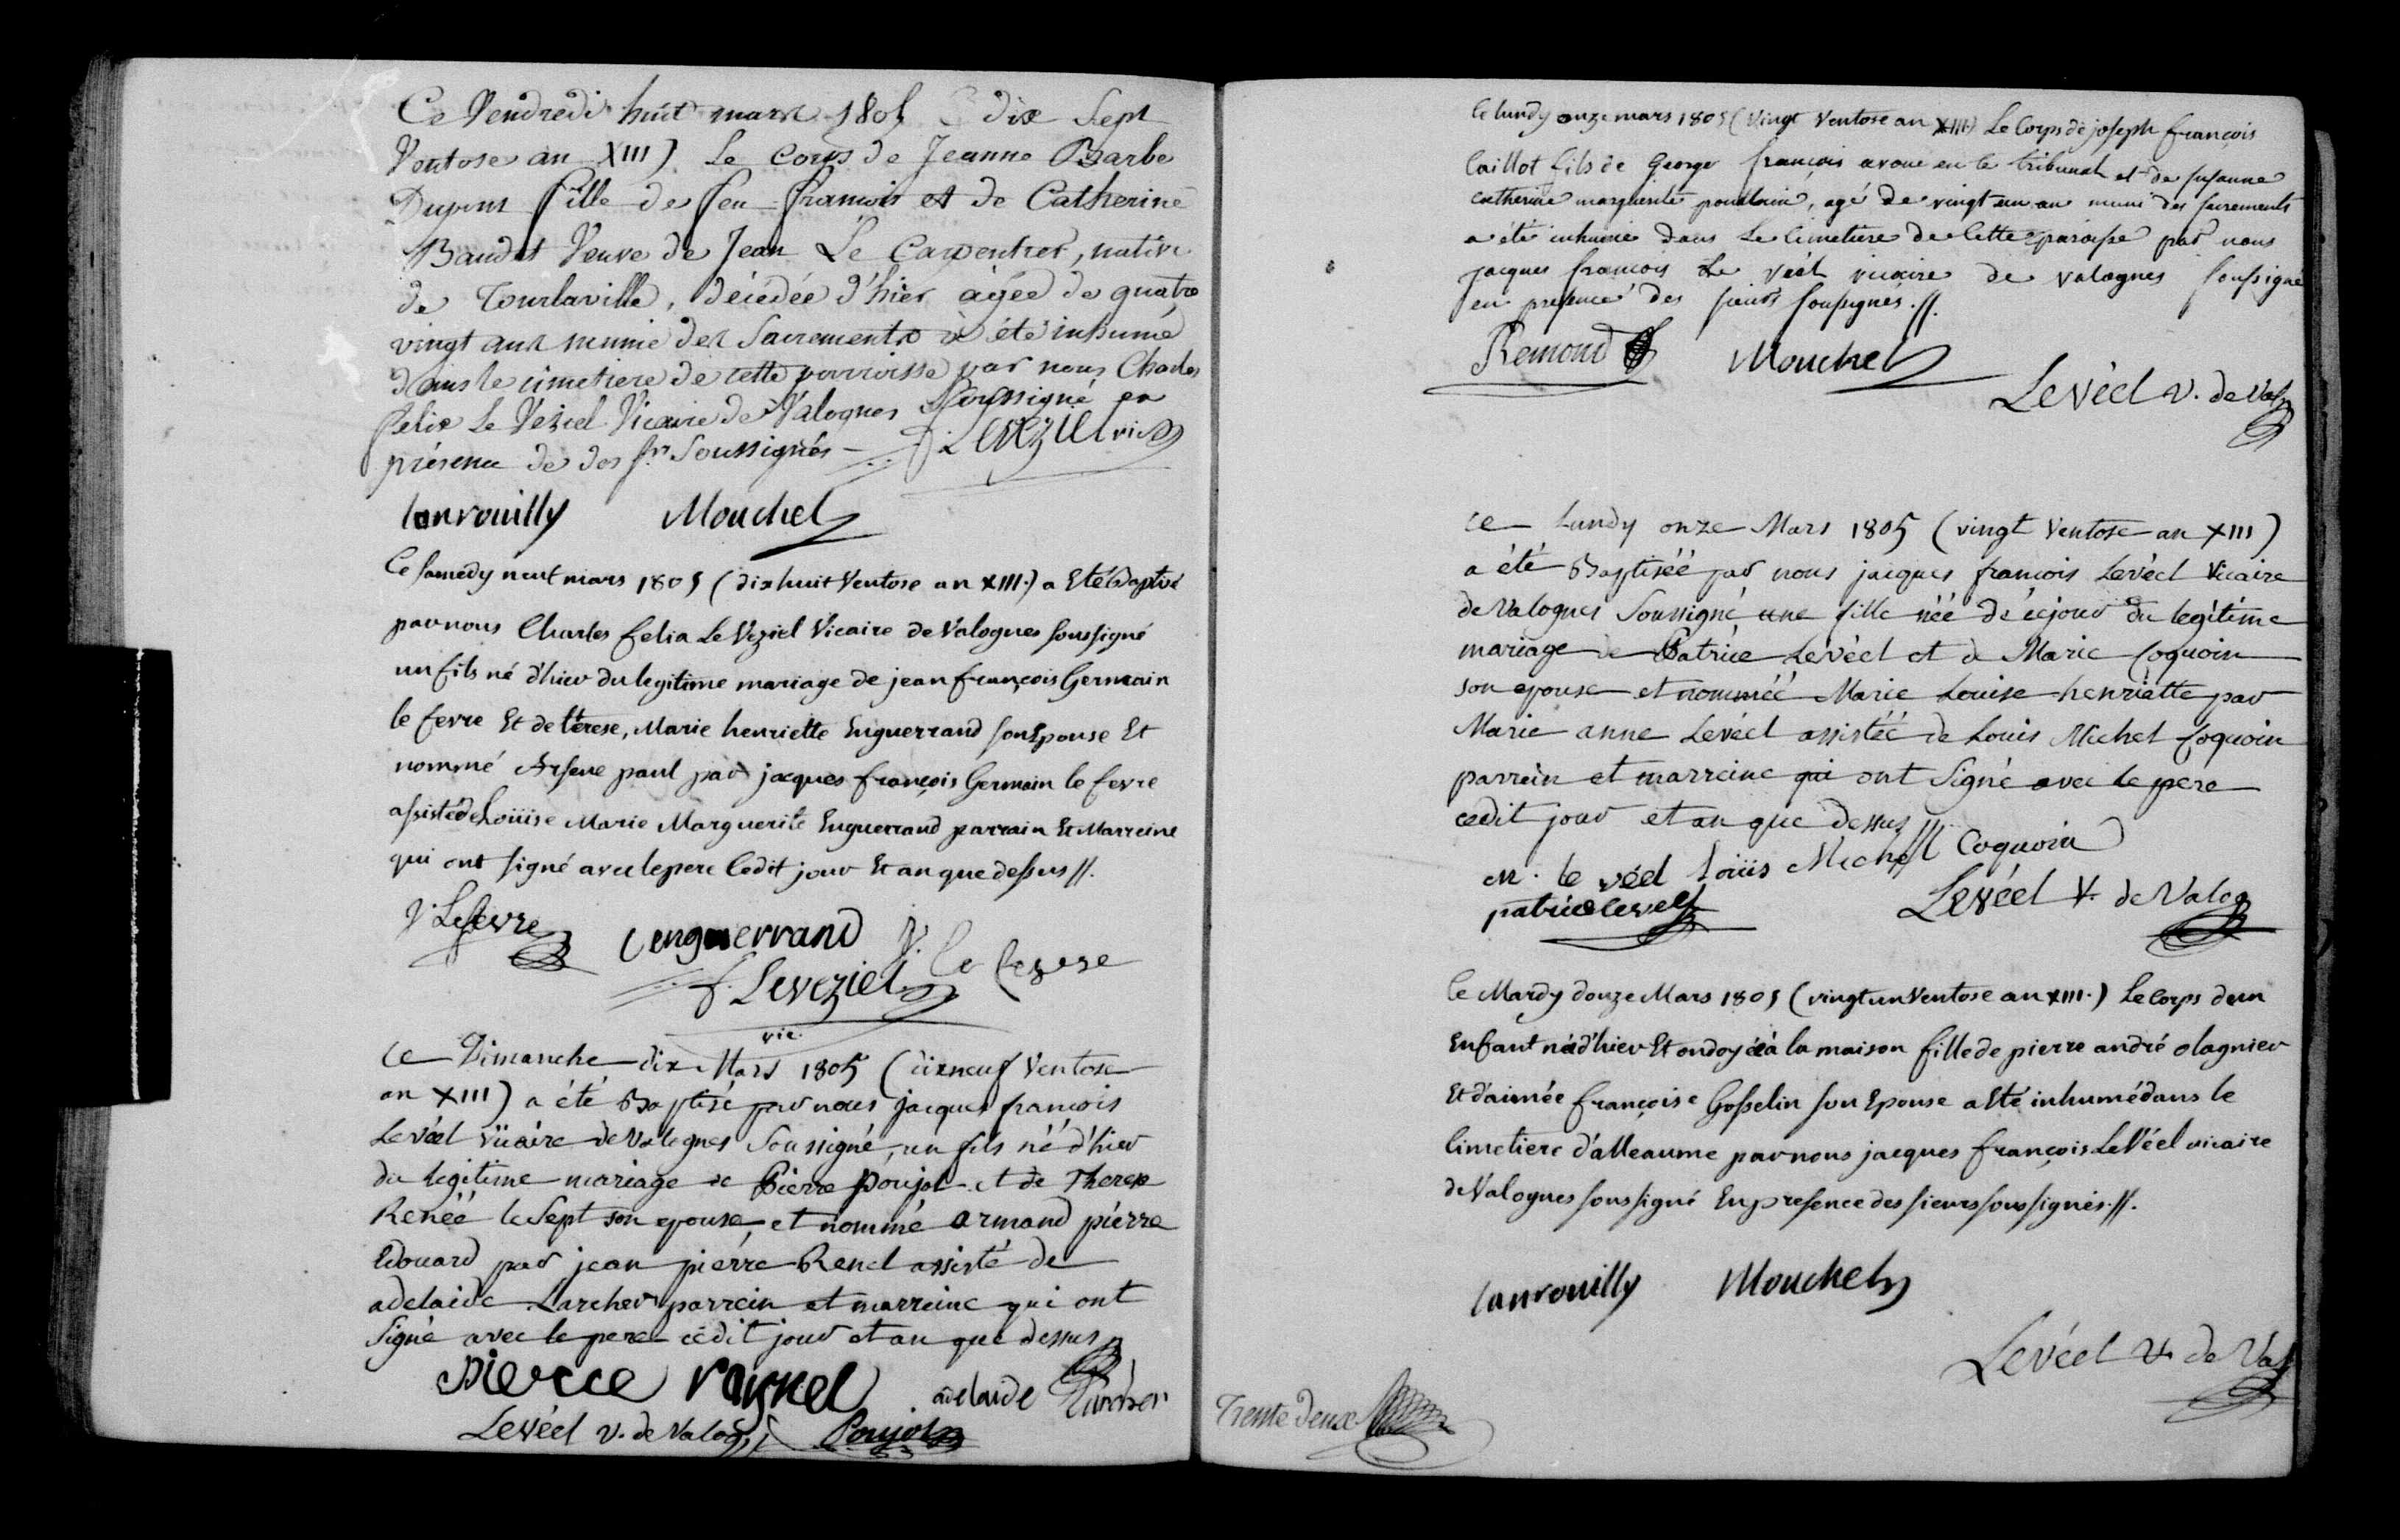 Ce Vendredi huit mars 1805 ( dix Sept
Ventose an XIII) Le corps de Jeanne Barbe
Dupont fille de feu francois et de Catherine
Baudet Veuve de Jean Le Carpentier, native
de Tourlaville, décédée d'hier âgée de quatre
vingt ans munie des Sacrements a été inhumé
dans le cimetiere de cette parroisse par nous Charles
felix Le Veziel Vicaire de Valognes Soussigné en
présence de des srs Soussignés -
f. Leveziel vic
Lanrouilly Mouchel
Ce samedy neuf mars 1805 (dix huit Ventose an XIII.) a Eté Baptisé
par nous Charles felix Le Veziel Vicaire de Valognes soussigné
un fils né d'hier du legitime mariage de jean françois Germain
le fevre Et de térese, Marie henriette Enguerrand son Epouse Et
nommé Arsene paul par jacques françois Germain le fevre
assisté de Loüise Marie Marguerite Enguerrand parrain Et Marreine
qui ont signé avec le pere Cedit jour Et an que dessus //.
Lefevre enguerrand J. le fevre
f. Leveziel
vic.
Ce Dimanche dix Mars 1805 (dixneuf Ventose
an XIII) a été Baptisé par nous jacques francois
Levéel vicaire de Valognes Soussigné, un fils né d'hier
du legitime mariage de Pierre Poujol et de Therese
Renéé le Sept son epouse, et nommé armand pierre
Edouard par jean pierre Renel assisté de
adelaide Larcher parrein et marreine qui ont
Signé avec le pere cédit jour et an que dessus
pierre raisnel adelaide Larcher
Levéel v. de Valog Poujol
Ce lundy onze mars 1805 (Vingt Ventose an XIII.) Le Corps de joseph françois
Caillot fils de George françois avoué en le tribunal et de susanne
catherine marguerite poullain, agé de vingt un an muni des sacrements
a été inhumé dans Le Cimetiere de Cette paroisse par nous
jacques françois Le véel vicaire de valognes soussigné
en presence des sieurs soussignés.//.
Remond Mouchel
Levéel v. de Val
ce Lundy onze Mars 1805 (vingt Ventose an XIII)
a été Baptiséé par nous jacques francois Levéel Vicaire
de Valognes Soussigné une fille néé de cejour du legitime
mariage de Patrice Levéel et de Marie Coquoin
son epouse et nomméé Marie Louise henriette par
Marie anne Levéel assistéé de Louis Michel Coquoin
parrein et marreine qui ont Signé avec le pere
cedit jour et an que dessus //
m. le véel Loüis Michel Coquoin
patrice levéel Levéel V. de Valog
Ce Mardy douze Mars 1805 (vingt un Ventose an XIII.) Le Corps d'un
Enfant né d'hier Et ondoyé à la maison fille de pierre andré olagnier
Et d'aimée françoise Gosselin son Epouse a Eté inhumé dans le
Cimetiere d'alleaume par nous jacques françois Le Véel vicaire
de Valognes soussigné En presence des sieurs soussignés.//.
Lanrouilly Mouchel
Levéel V. de Val
Trente deux